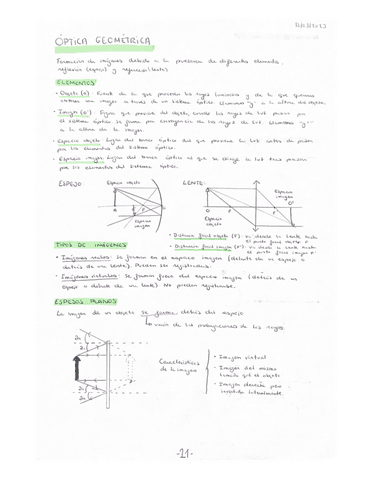 ÓPTICA GEOMÉTRICA
Formación de imágenes debido a la presencia de diferentes elementos,
reflexión (espejo) y refracción (lente)
ELEMENTOS
· Objeto (O): Fuente de la que proceden los rayos luminosos y de la que queremos
obtener una imagen a través de un sistema óptico. Llamamos "y" a la altura del objeto.
· Imagen (O'): Figura que procede del objeto, cuando los rayos de luz pasan por
el sistema óptico. Se forma por convergencia de los rayos de luz. Llamamos "y'"
a la altura de la imagen.
· Espacio objeto: Región del banco óptico del que proviene la luz antes de pasar
por los elementos del sistema óptico.
· Espacio imagen: Región del banco óptico al que se dirige la luz tras pasar
por los elementos del sistema óptico.
ESPEJO
Espacio objeto
Espacio imagen
LENTE:
Espacio objeto
Espacio imagen
· Distancia focal objeto (F): va desde la lente hasta
el punto focal objeto F
· Distancia focal imagen (F'): va desde la lente hasta
el punto focal imagen F'
TIPOS DE IMÁGENES
· Imágenes reales: Se forman en el espacio imagen (delante de un espejo o
detrás de una lente). Pueden ser registradas.
· Imágenes virtuales: Se forman fuera del espacio imagen (detrás de un
espejo o delante de una lente). No pueden registrarse.
ESPEJOS PLANOS
La imagen de un objeto se forma detrás del espejo
unión de las prolongaciones de los rayos.
Características
de la imagen
· Imagen virtual
· Imagen del mismo
tamaño que el objeto
· Imagen derecha pero
invertida lateralmente.
-21-